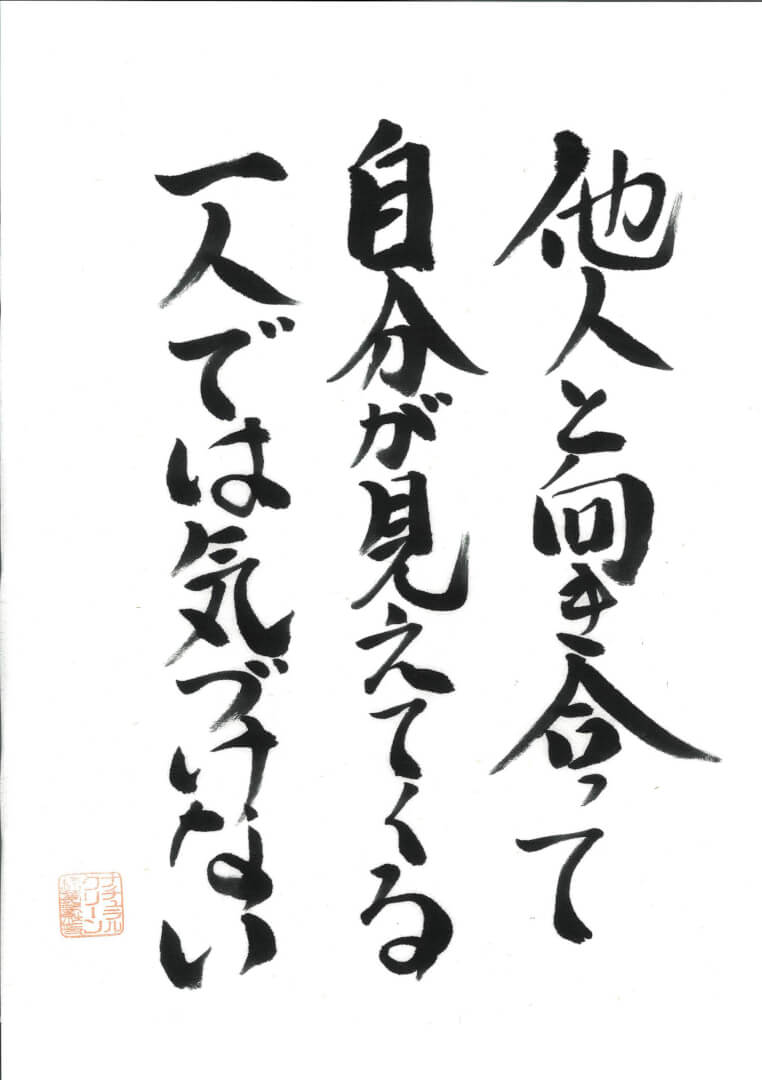 他人と向き合って
自分が見えてくる
一人では気づけない
ナチュラル
クリーン